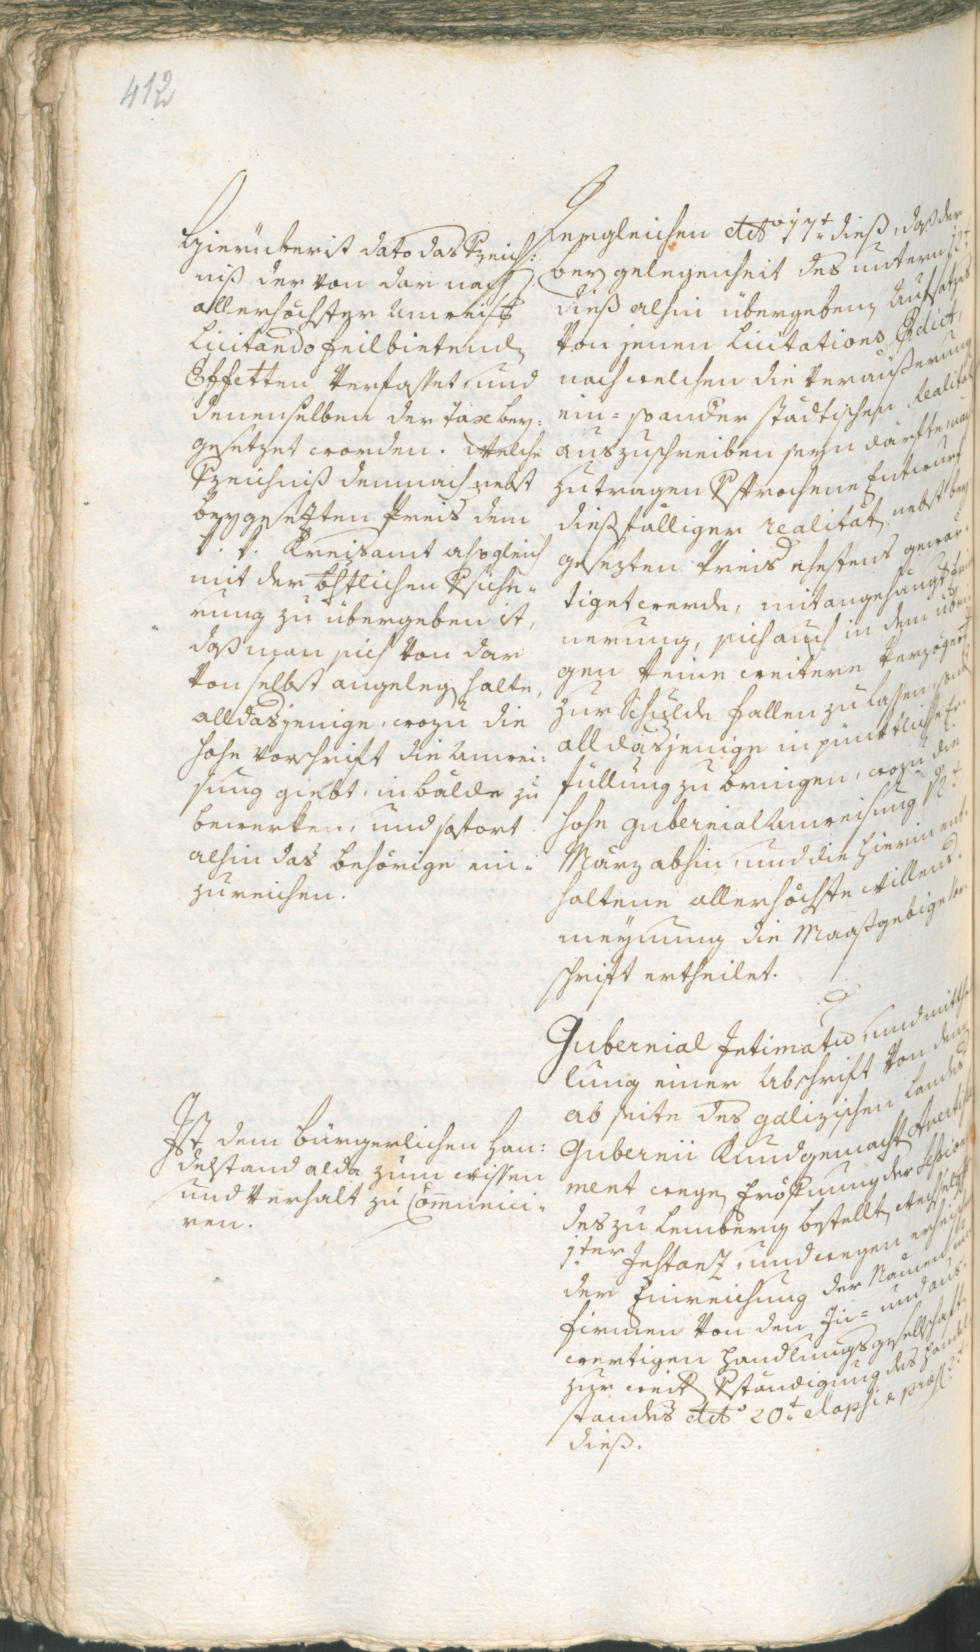 412
Hierüber ist dato das Vzeich¬
niß der von dar nach
allerhöchster Anweisg
Licitando feilbietend
Effecten verfasset, und
denenselben der Tax bey¬
gesetzet worden. Welche
Vzeichniß demnach nebst
beygesezten Preis dem
k. k. Kreisamt alsogleich
mit der Vsiche¬
rung zu übergeben ist,
daß man sich von dar
von selbst angelegen halte,
all dasjenige, wozu die
hohe Vorschrift die Anwei¬
sung giebt, in bälde zu
bewerken, und sofort
alhin das behörige ein¬
zureichen.
Ist dem bürgerlichen Han¬
delstand alda zum wissen
und Verhalt zu Communici¬
ren.
Dergleichen ddto 17t dieß, daß der
bey gelegenheit des unterm
dieß alhin übergebenen Aufsatzes
von jenen Licitations Edict,
nach welchen die Veräußerung
ein- so ander städtischen Realität
auszuschreiben seyn dürfte,
zutragen Vsprochene Entwurf
dießfälliger realität, nebst bey
gesezten Preis ehestens gewär¬
tiget werde, mit angehängt
nerung, sich auch in dem übri¬
gen keine weitere Verzögerung
zur Schulde fallen zu lassen,
all dasjenige in pünktliche Er¬
füllung zu bringen, wozu die
hohe gubernial Anweisung
März abhin, und die hierin ent¬
haltene allerhöchste willens¬
meynung die Maaßgebige Vor¬
schrift ertheilet.
Gubernial Intimatum, und mitthei¬
lung einer Abschrift von dem
ab seite des galizischen Landes
Gubernii Kundgemacht Averti¬
ment wegen Eröffnung der
des zu Lemberg bestellt
1ter Instanz, und wegen
der Einreichung der Namen
firmen von den In- und aus¬
wertigen Handlungsgesellschaft
zur Vständigung des Handel
standes ddto 20t elapsi & praes.
dieß.